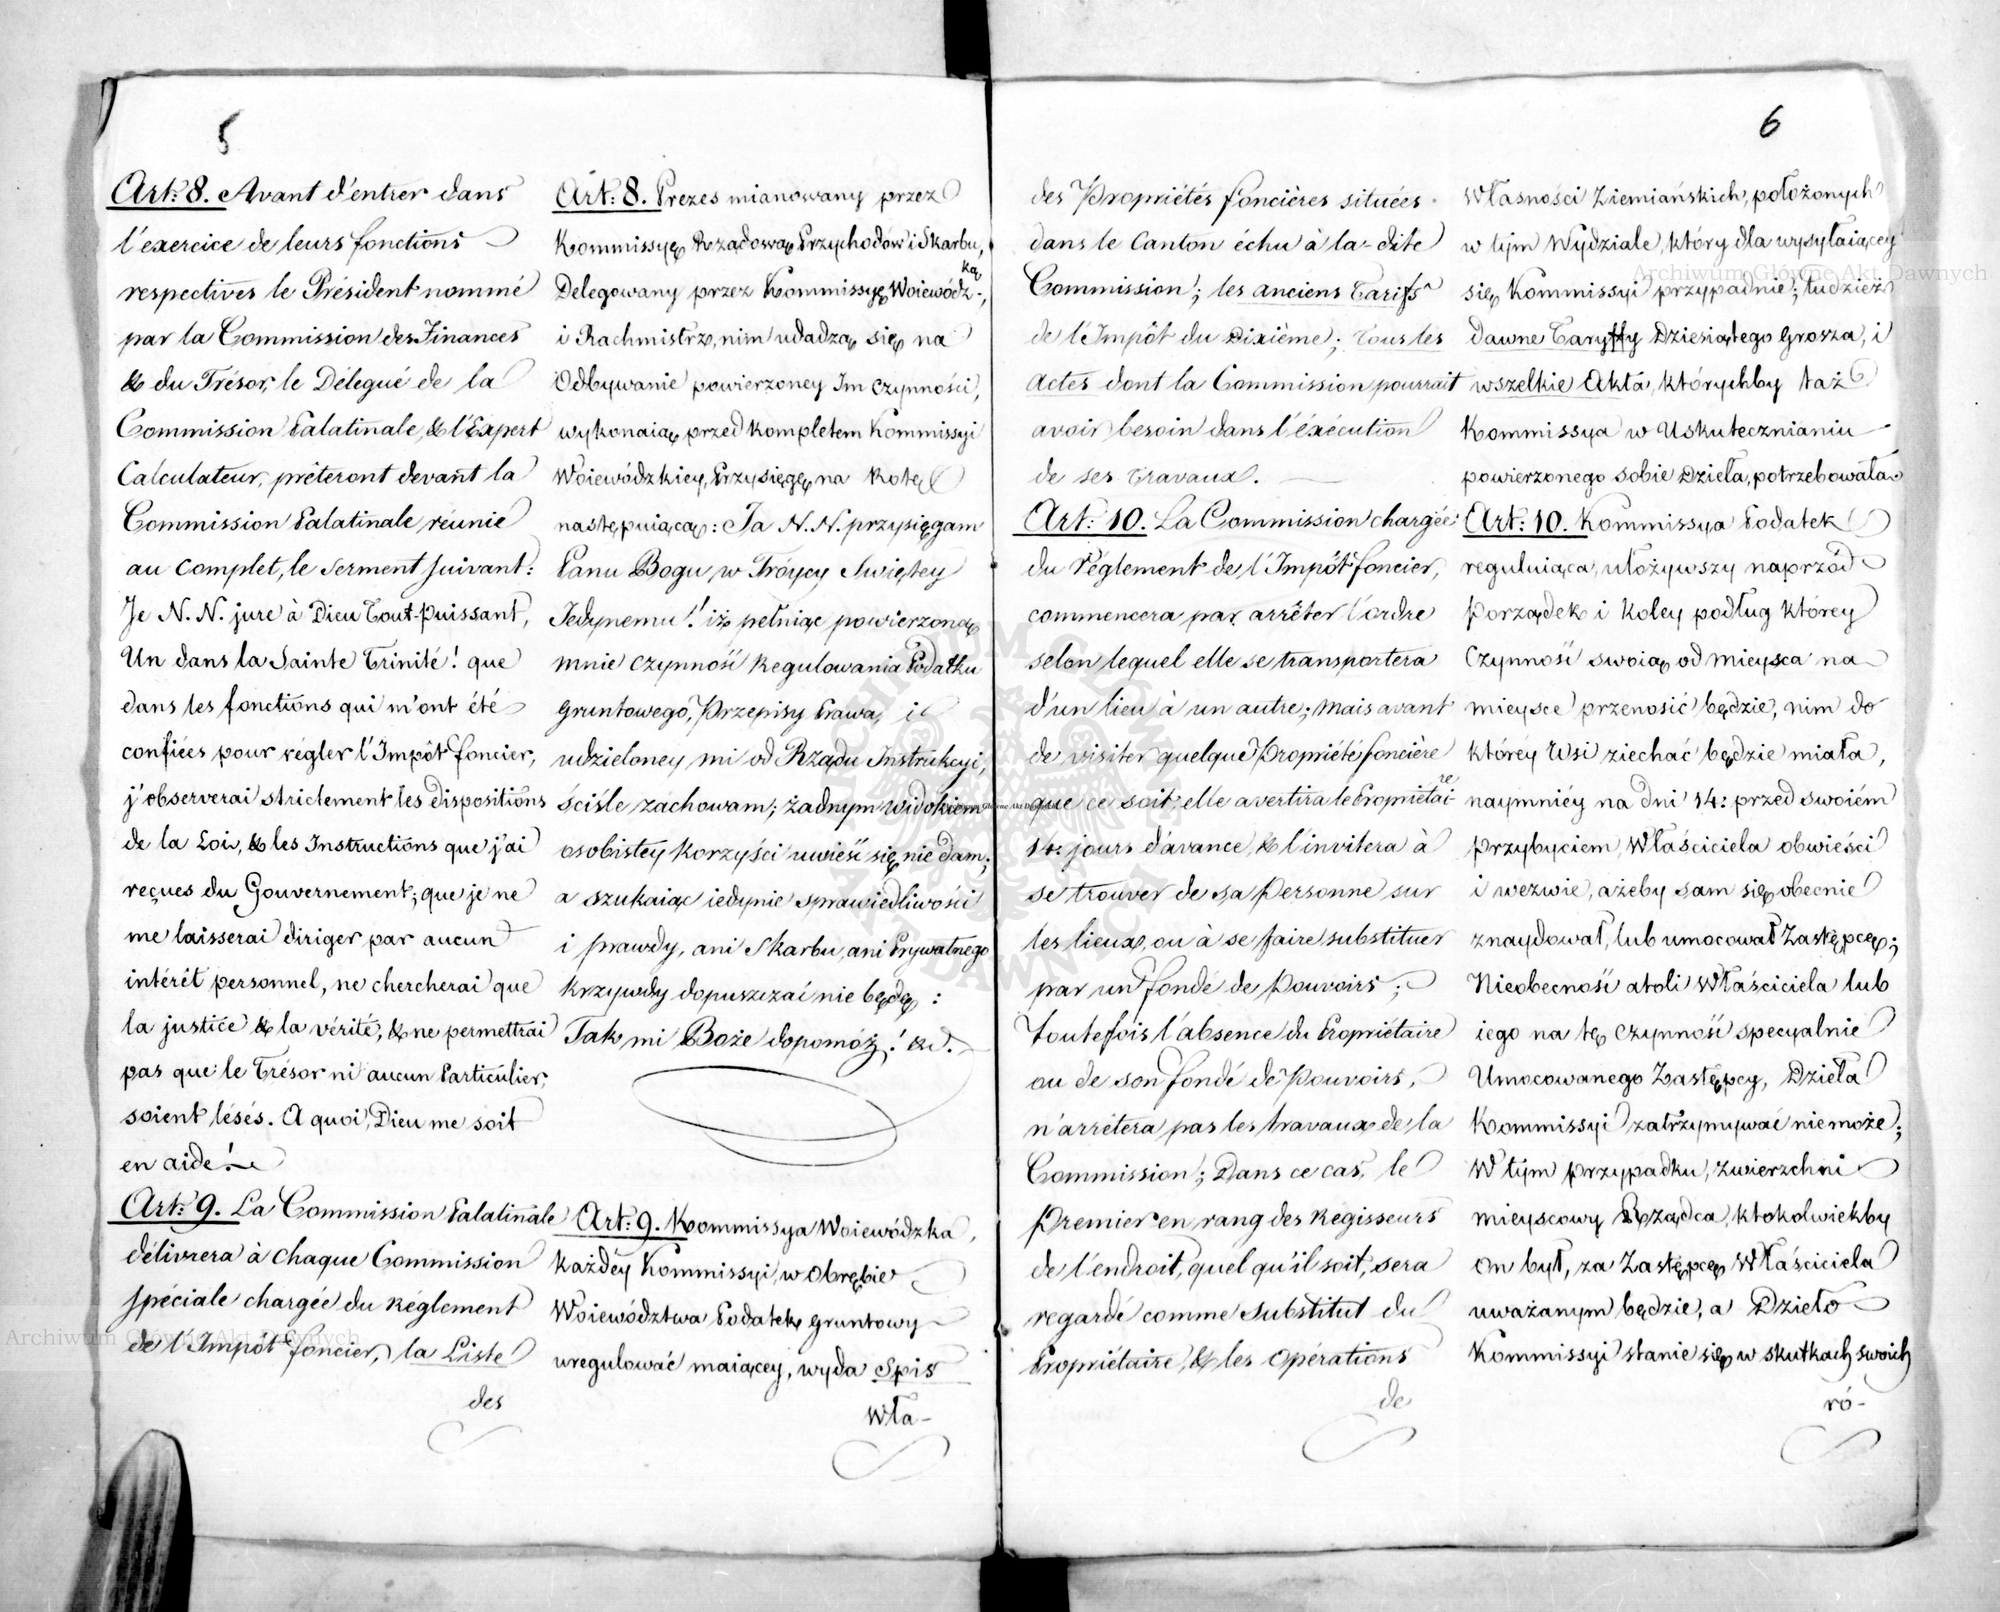 5
Art: 8. Avant d'entrer dans
l'exercice de leurs fonctions
respectives le Président nommé
par la Commission des Finances
& du Trésor, le Délegué de la
Commission Palatinale, & l'Expert
Calculateur, prêteront devant la
Commission Palatinale réunie
au Complet, le Serment suivant:
Je N. N. jure à Dieu Tout-Puissant,
Un dans la Sainte Trinité! que
dans les fonctions qui m'ont été
confiées pour régler l'Impôt foncier,
j'observerai strictement les dispositions
de la Loi, & les Instructions que j'ai
reçues du Gouvernement; que je ne
me laisserai diriger par aucun
intérêt personnel, ne chercherai que
la justice & la vérité, & ne permettrai
pas que le Trésor ni aucun Particulier,
soient lésés. A quoi, Dieu me soit
en aide!
Art: 9. La Commission Palatinale
délivrera à chaque Commission
spéciale chargée du Réglement
de l'Impôt foncier, la Liste
des
Art: 8. Prezes mianowany przez
Kommissyę Rządową Przychodów i Skarbu,
Delegowany przez Kommissyę Woiewódz-ką,
i Rachmistrz, nim udadzą się na
Odbywanie powierzoney Im czynności,
wykonaią przed kompletem Kommissyi
Woiewódzkiey, Przysięgę na Rotę
następuiącą: Ja N. N. przysięgam
Panu Bogu w Tróycy Swiętey
Jedynemu! iż pełniąc powierzoną
mnie czynność Regulowania Podatku
gruntowego, Przepisy Prawa, i
udzieloney mi od Rządu Instrukcyi,
ściśle zachowam; żadnym widokiem
osobistey korzyści uwieść się nie dam;
a szukaiąc iedynie sprawiedliwości
i prawdy, ani Skarbu, ani Prywatnego
krzywdy dopuszczać nie będę:
Tak mi Boże dopomóż! &c.
Art: 9. Kommissya Woiewódzka,
każdéy Kommissyi, w Obrębie
Woiewództwa Podatek gruntowy
uregulować maiącey, wyda Spis
Wła-
6
des Propriétés foncières situées
dans le Canton échu à la-dite
Commission; les anciens Tarifs
de l'Impôt du Dixième; Tous les
Actes dont la Commission pourrait
avoir besoin dans l'éxécution
de ses travaux.
Art: 10. La Commission chargée
du Réglement de l'Impôt foncier,
commencera par arrêter l'ordre
selon lequel elle se transportera
d'un lieu à un autre; mais avant
de visiter quelque Propriété foncière
que ce soit, elle avertira le Propriétai-re
14: jours d'avance, & l'invitera à
se trouver de sa Personne sur
les lieux, ou à se faire substituer
par un fondé de Pouvoirs;
Toutefois l'absence du Propriétaire
ou de son fondé de Pouvoirs,
n'arrêtera pas les travaux de la
Commission; Dans ce cas, le
Premier en rang des Regisseurs
de l'endroit, quel qu'il soit, sera
regardé comme Substitut du
Propriétaire, & les Opérations
de
Własności Ziemiańskich, położonych
w tym Wydziale, który dla wysyłaiącey
się Kommissyi przypadnie; tudzież
dawne Taryffy Dziesiątego Grosza, i
wszelkie Akta, którychby taż
Kommissya w Uskutecznianiu
powierzonego sobie Dzieła, potrzebowała.
Art: 10. Kommissya Podatek
reguluiąca, ułożywszy naprzód
Porządek i Koley podług którey
Czynność swoią od mieysca na
mieysce przenosić będzie, nim do
któréy Wsi ziechać będzie miała,
naymniéy na dni 14: przed swoiém
przybyciem, Właściciela obwieści
i wezwie, ażeby sam się obecnie
znaydował, lub umocował Zastępcę;
Nieobecność atoli Właściciela lub
iego na tę czynność specyalnie
Umocowanego Zastępcy, Dzieła
Kommissyi zatrzymywać nie może;
W tym przypadku, Zwierzchni
mieyscowy Rządca, ktokolwiekby
On był, za Zastępcę Właściciela
uważanym będzie, a Dzieło
Kommissyi stanie się w skutkach swoich
ró-
Archiwum Główne Akt Dawnych
Archiwum Główne Akt Dawnych